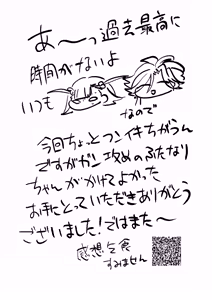 あ〜っ過去最高に
時間がないよ
いつも
なので
今回ちょっとフンイキちがうん
ですがガン攻めのふたなり
ちゃんがかけてよかった
お手にとっていただきありがとう
ございました!ではまた〜
感想乞食
すみません